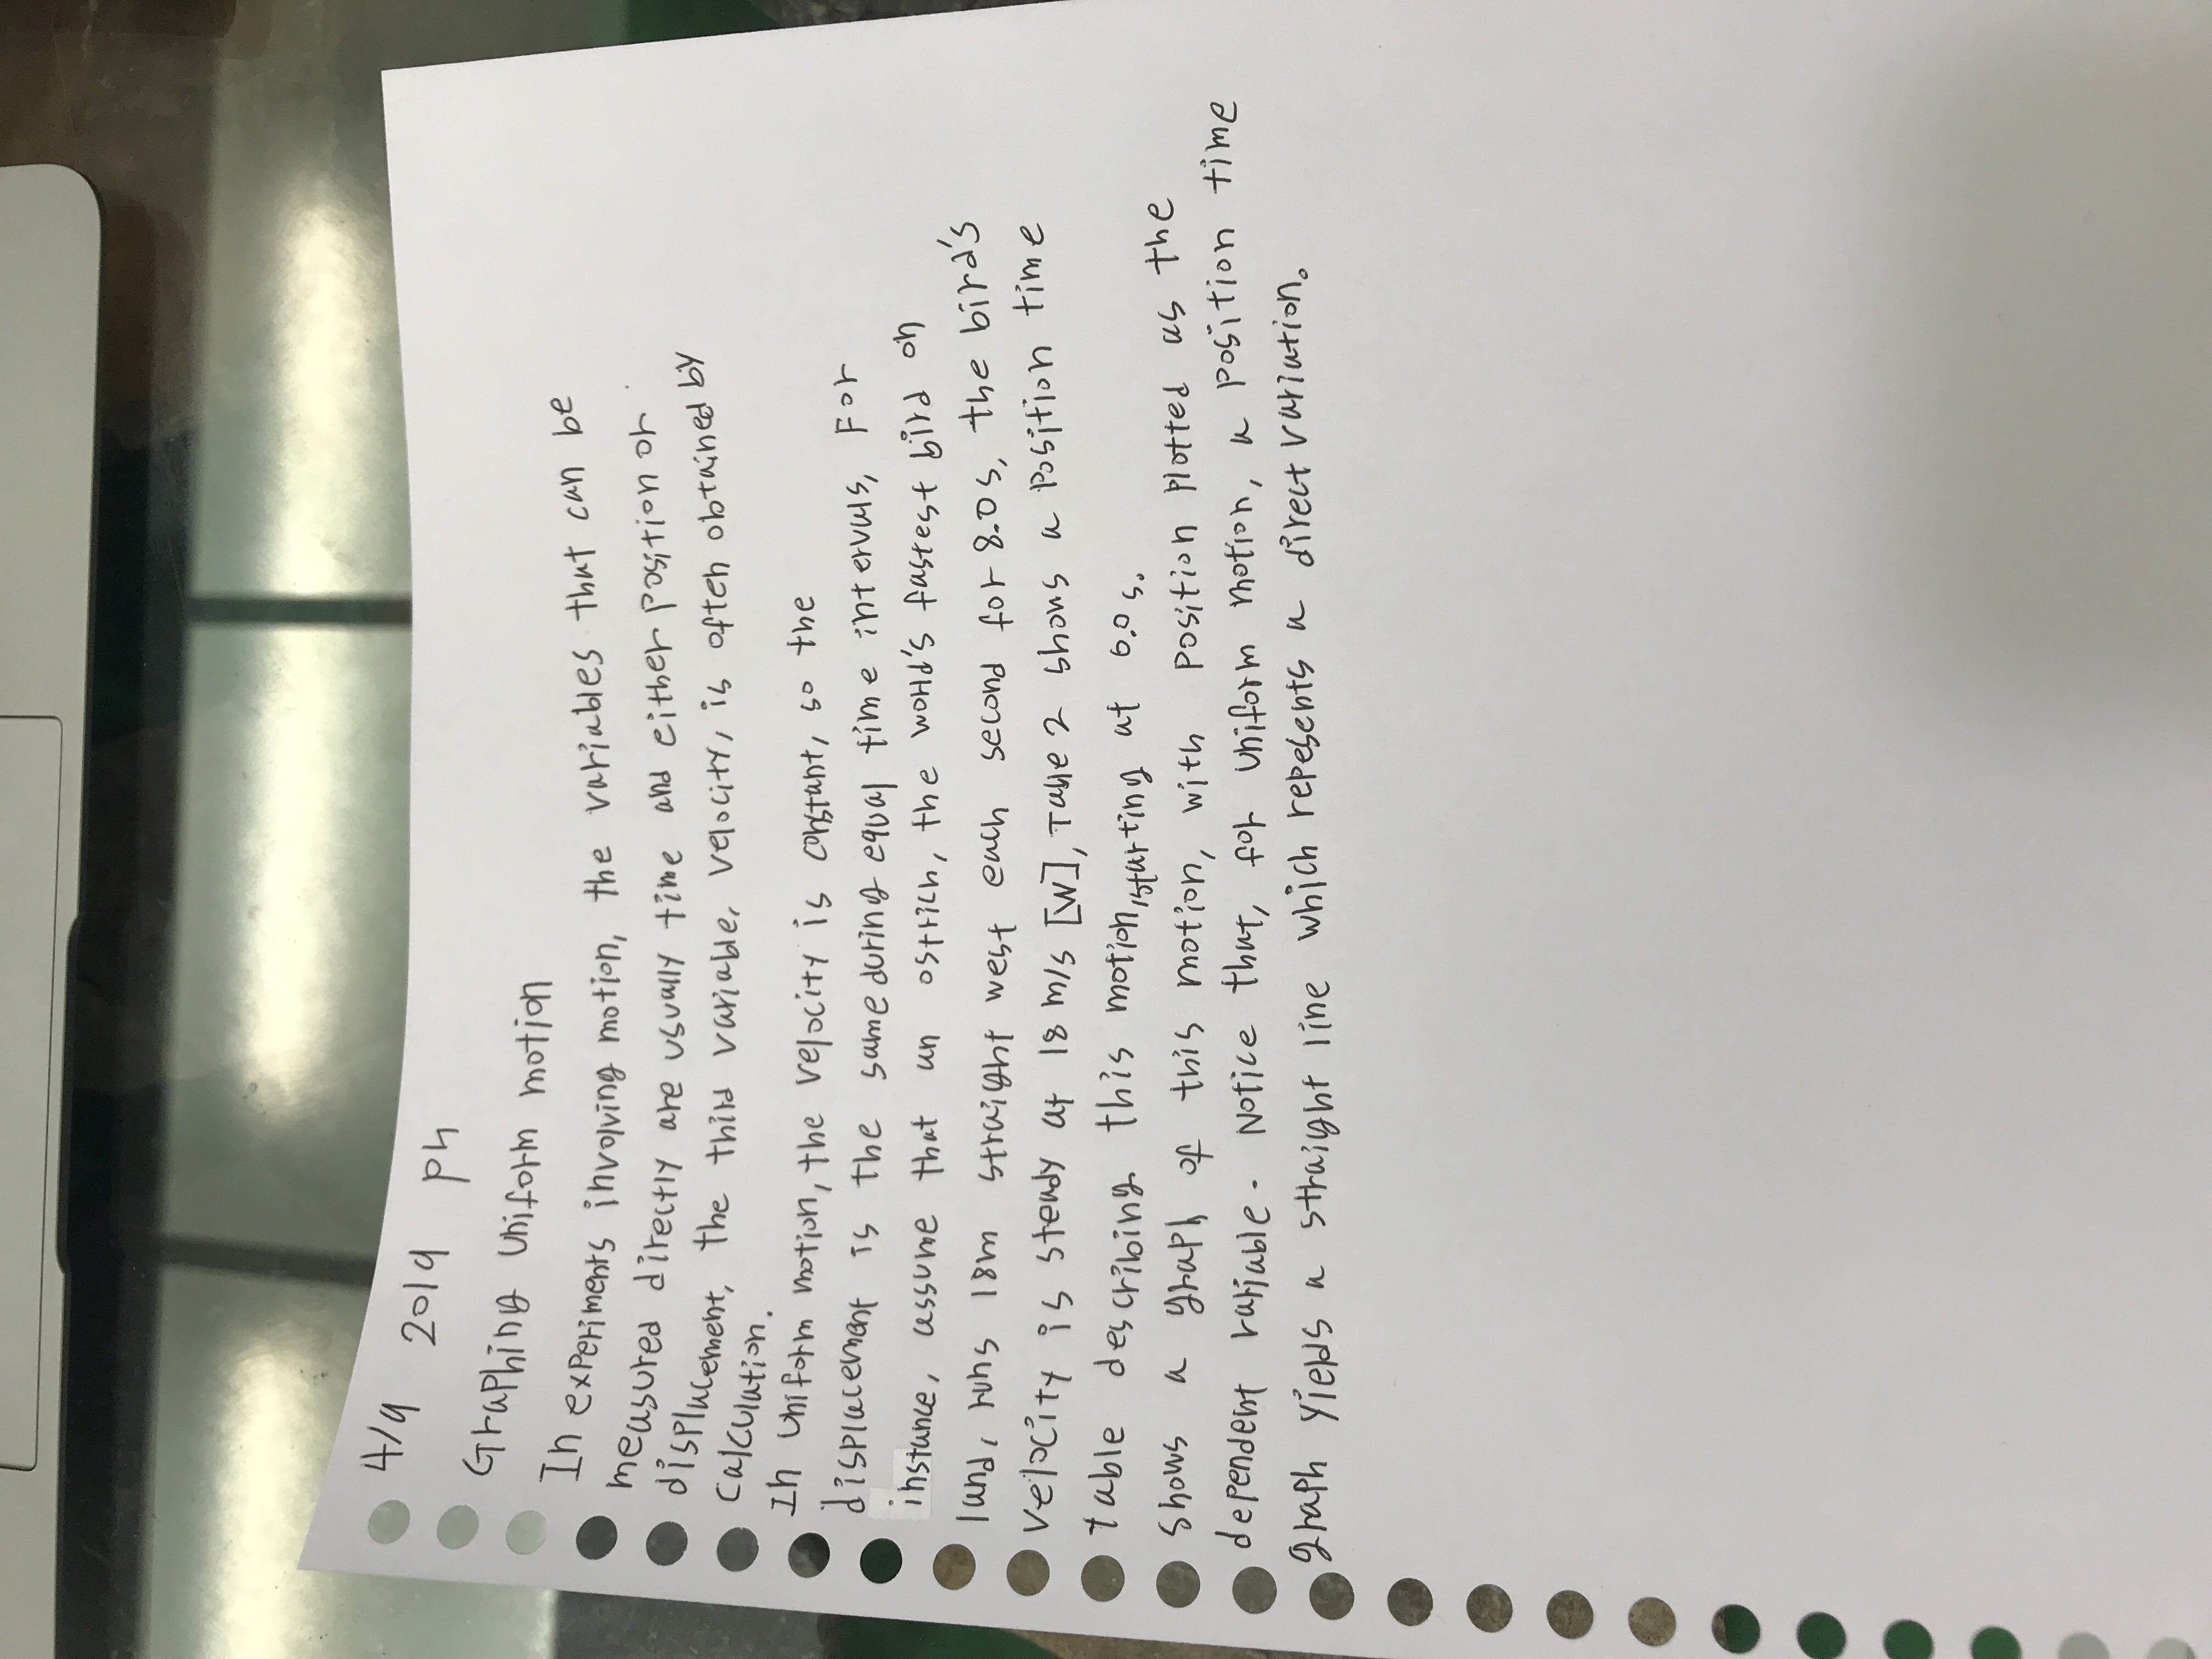 4/9 2019 ph
Graphing Uniform motion
In experiments involving motion, the variables that can be
measured directly are usually time and either position or
displacement, the third variable, velocity, is often obtained by
calculation.
In uniform motion, the velocity is constant, so the
displacement is the same during equal time intervals, For
instance, assume that an ostrich, the world's fastest bird on
land, runs 18m straight west each second for 8.0s, the bird's
velocity is steady at 18 m/s [W], Table 2 shows a position time
table describing this motion, starting at 0.0s.
shows a graph of this motion, with position plotted as the
dependent variable. Notice that, for uniform motion, a position time
graph yields a straight line which repesents a direct variation.